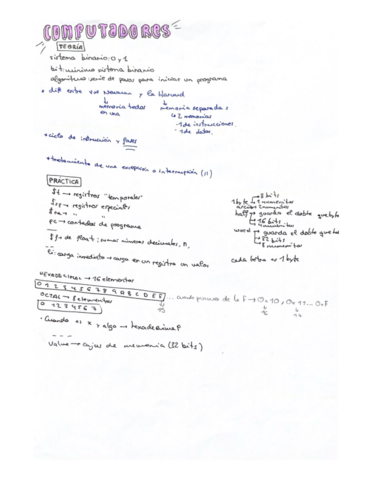 COMPUTADORES
TEORÍA
sistema binario: 0 y 1
bit: mínimo sistema binario
algoritmo: serie de pasos para iniciar un programa
diff entre Von Neuman y la Harvard
memoria todas en una
memoria separadas
2 memorias
1 de instrucciones
1 de datos.
ciclo de instrucción y fases
tratamiento de una excepción o interrupción
PRÁCTICA
$t → registros "temporales"
$sp → registros especiales
pc → contador de programa
$f → de float: sumar números decimales,
li: carga inmediata → carga en un registro un valor
8 bits
1 byte
half → guarda el doble que byte
16 bits
word → guarda el doble que half
32 bits
cada letra es 1 byte
HEXADECIMAL → 16 elementos
0 1 2 3 4 5 6 7 8 9 A B C D E F
... cuando pasamos de la F → 0x10, 0x11 ... 0xF
OCTAL → 8 elementos
0 1 2 3 4 5 6 7
Cuando es x algo → hexadecimal
value → cajas de memoria (32 bits)